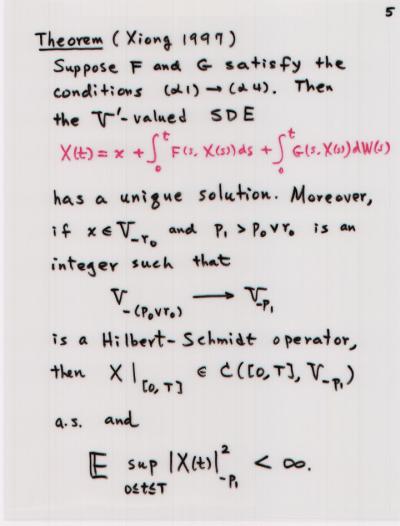 5
Theorem (Xiong 1997)
Suppose F and G satisfy the
conditions (d1) → (d4). Then
the V'-valued SDE
X(t) = x + ∫₀ᵗ F(s, X(s)) ds + ∫₀ᵗ G(s, X(s)) dW(s)
has a unique solution. Moreover,
if x ∈ V_{-r₀} and p₁ > p₀ ∨ r₀ is an
integer such that
V_{-(p₀∨r₀)} ⟶ V_{-p₁}
is a Hilbert-Schmidt operator,
then X|_{[0,T]} ∈ C([0,T], V_{-p₁})
a.s. and
𝔼 sup_{0≤t≤T} |X(t)|²_{-p₁} < ∞.